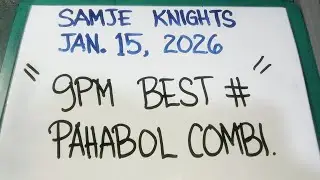 SAMJE KNIGHTS
JAN. 15, 2026
"9PM BEST #"
PAHABOL COMBI.